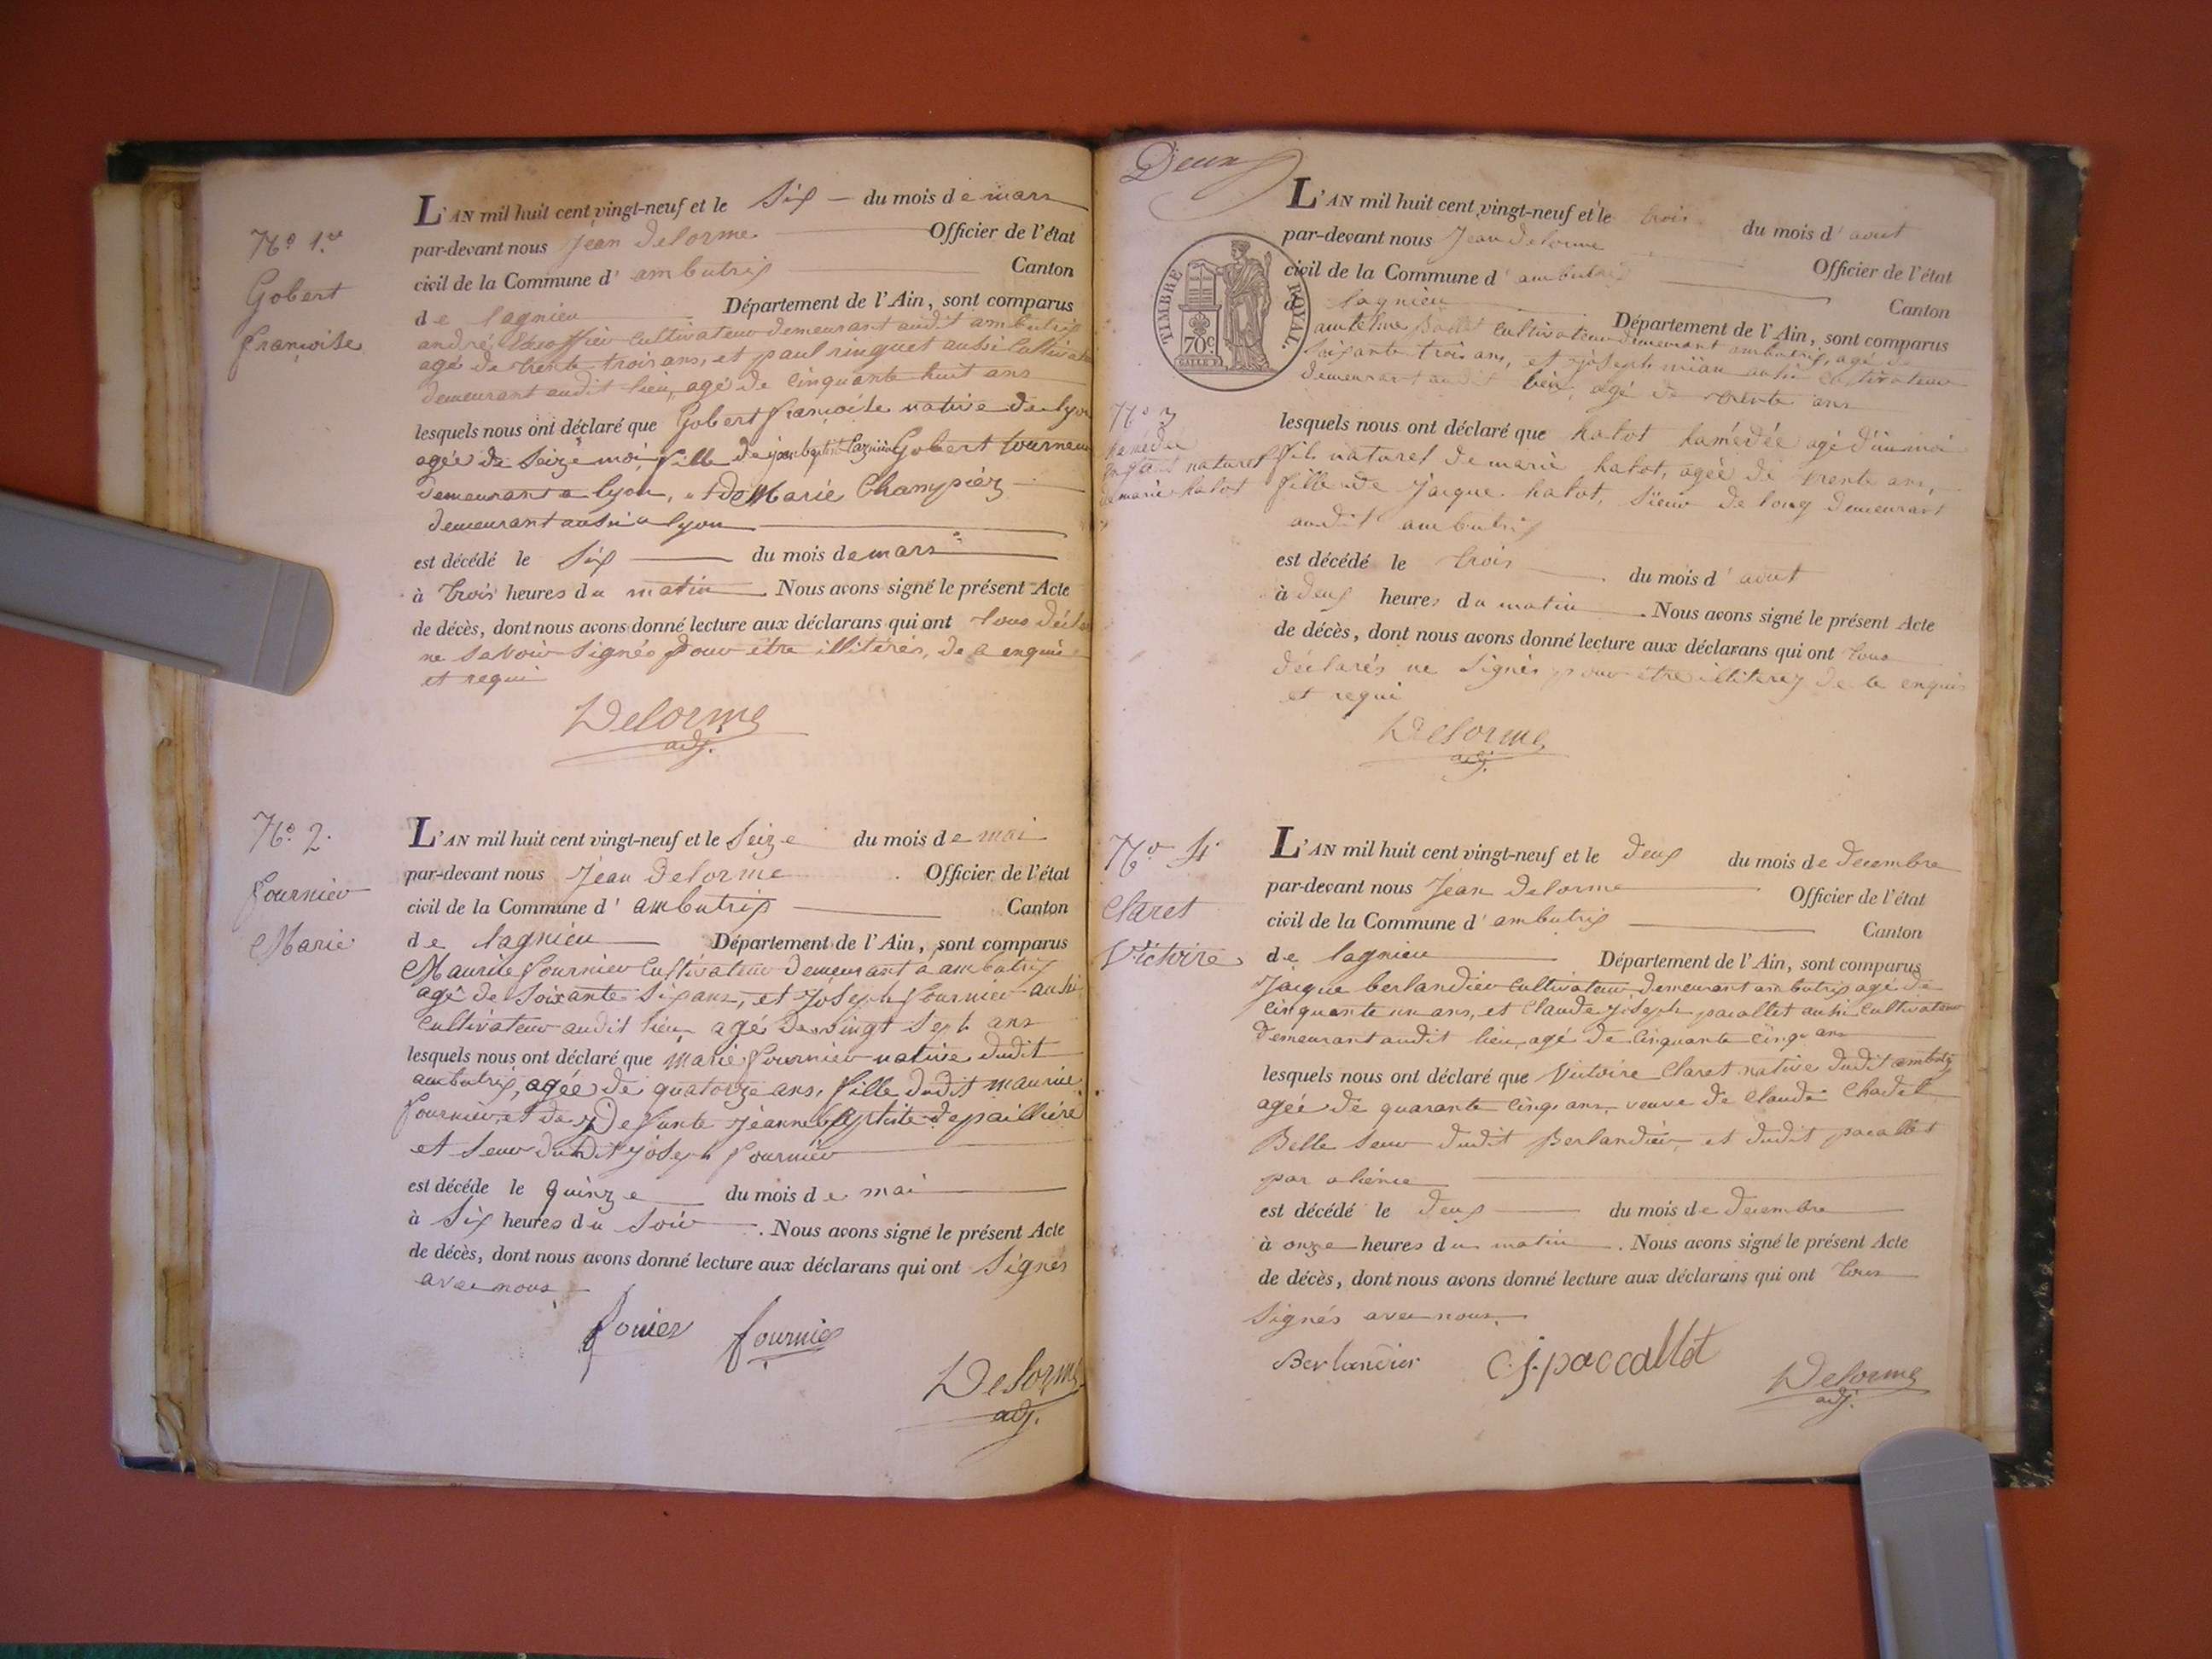 N.º 1.er
Gobert
françoise
L'AN mil huit cent vingt-neuf et le Six du mois de mars
par-devant nous Jean Delorme Officier de l'état
civil de la Commune d' ambutrix Canton
de lagnieu Département de l'Ain, sont comparus
andré cultivateur demeurant audit ambutrix
agé de trente trois ans, et paul ringuet aussi Cultivateur
demeurant audit lieu, agé de Cinquante huit ans
lesquels nous ont déclaré que Gobert françoise native de lyon
agée de Seize moi, fille de Gobert tourneur
demeurant a lyon, et de Marie Champiéz
demeurant aussi a lyon
est décédé le Six du mois de mars
à trois heures du matin. Nous avons signé le présent Acte
de décès, dont nous avons donné lecture aux déclarans qui ont tous déclaré
ne Savoir Signés pour être illitérés, de ce enquie
et requi
Delorme
adj.
N.º 2.
fournier
Marie
L'AN mil huit cent vingt-neuf et le Seize du mois de mai
par-devant nous Jean Delorme Officier de l'état
civil de la Commune d' ambutrix Canton
de lagnieu Département de l'Ain, sont comparus
Maurice fournier Cultivateur demeurant a ambutrix
agé de Soixante Six ans, et joseph fournier aussi
Cultivateur audit lieu agé de vingt Sept ans
lesquels nous ont déclaré que marie fournier native dudit
ambutrix, agée de quatorze ans, fille dudit maurice
fournier, et de Defunte jeanne baptiste depailliére
et Seur dudit joseph fournier
est décédé le quinze du mois de mai
à Six heures du Soir. Nous avons signé le présent Acte
de décès, dont nous avons donné lecture aux déclarans qui ont Signés
avec nous
fournier
Delorme
adj.
Deux
TIMBRE ROYAL.
70c
L'AN mil huit cent vingt-neuf et le trois du mois d' aout
par-devant nous Jean Delorme Officier de l'état
civil de la Commune d' ambutrix Canton
de lagnieu Département de l'Ain, sont comparus
antelme cultivateur demeurant ambutrix, agé de
Soixante trois ans, et joseph aussi cultivateur
demeurant audit lieu, agé de trente ans
N.º 3
enfant naturel
de marie halot
lesquels nous ont déclaré que halot agé d'un moi
fils naturel de marie halot, agée de trente ans,
fille de jacque halot, demeurant
audit ambutrix
est décédé le trois du mois d' aout
à deux heures du matin. Nous avons signé le présent Acte
de décès, dont nous avons donné lecture aux déclarans qui ont tous
déclarés ne Signés pour être illiterez de ce enquis
et requi
Delorme
adj.
N.º 4
Claret
Victoire
L'AN mil huit cent vingt-neuf et le deux du mois de Decembre
par-devant nous Jean Delorme Officier de l'état
civil de la Commune d' ambutrix Canton
de lagnieu Département de l'Ain, sont comparus
Jacque berlandier Cultivateur demeurant ambutrix agé de
Cinquante un ans, et Claude joseph pacallet aussi Cultivateur
Demeurant audit lieu, agé de Cinquante Cinq ans
lesquels nous ont déclaré que Victoire Claret native dudit ambutrix
agée de quarante Cinq ans, veuve de Claude Chadel
Belle Seur dudit Berlandier, et dudit pacallet
par aliénce
est décédé le deux du mois de Decembre
à onze heures du matin. Nous avons signé le présent Acte
de décès, dont nous avons donné lecture aux déclarans qui ont tous
Signés avec nous.
Berlandier
C.j. paccallet
Delorme
adj.